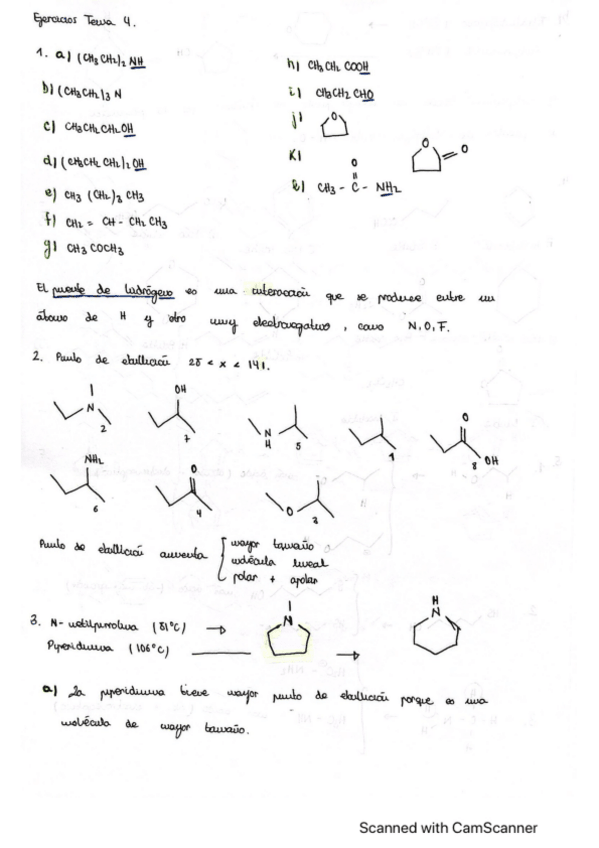 Ejercicios Tema 4.
1. a) (CH3 CH2)2 NH
h) CH3CH2 COOH
b) (CH3CH2)3 N
i) CH3CH2 CHO
c) CH3CH2CH2OH
j) O
d) (CH3CH2 CH2)2 OH
k) O = O
e) CH3 (CH2)3 CH3
l) CH3 - C - NH2
O
f) CH2 = CH - CH2 CH3
g) CH3 COCH3
El puente de hidrógeno es una interacción que se produce entre un
átomo de H y otro muy electronegativo, como N, O, F.
2. Punto de ebullición 28 < x < 141.
N 2
OH 7
N H 5
1
O OH 8
NH2 6
O 4
O 3
Punto de ebullición aumenta
mayor tamaño
molécula lineal
polar + apolar
3. N-metilpirrolina (81ºC) → N
Pyperidinna (106ºC) → H N
a) La pyperidinna tiene mayor punto de ebullición porque es una
molécula de mayor tamaño.
Scanned with CamScanner